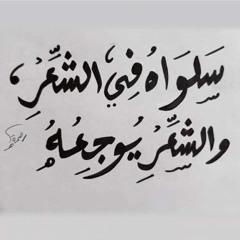 سَلوَاهُ فِي الشِّعْرِ،
والشِّعْرِ يُوجِعُهُ